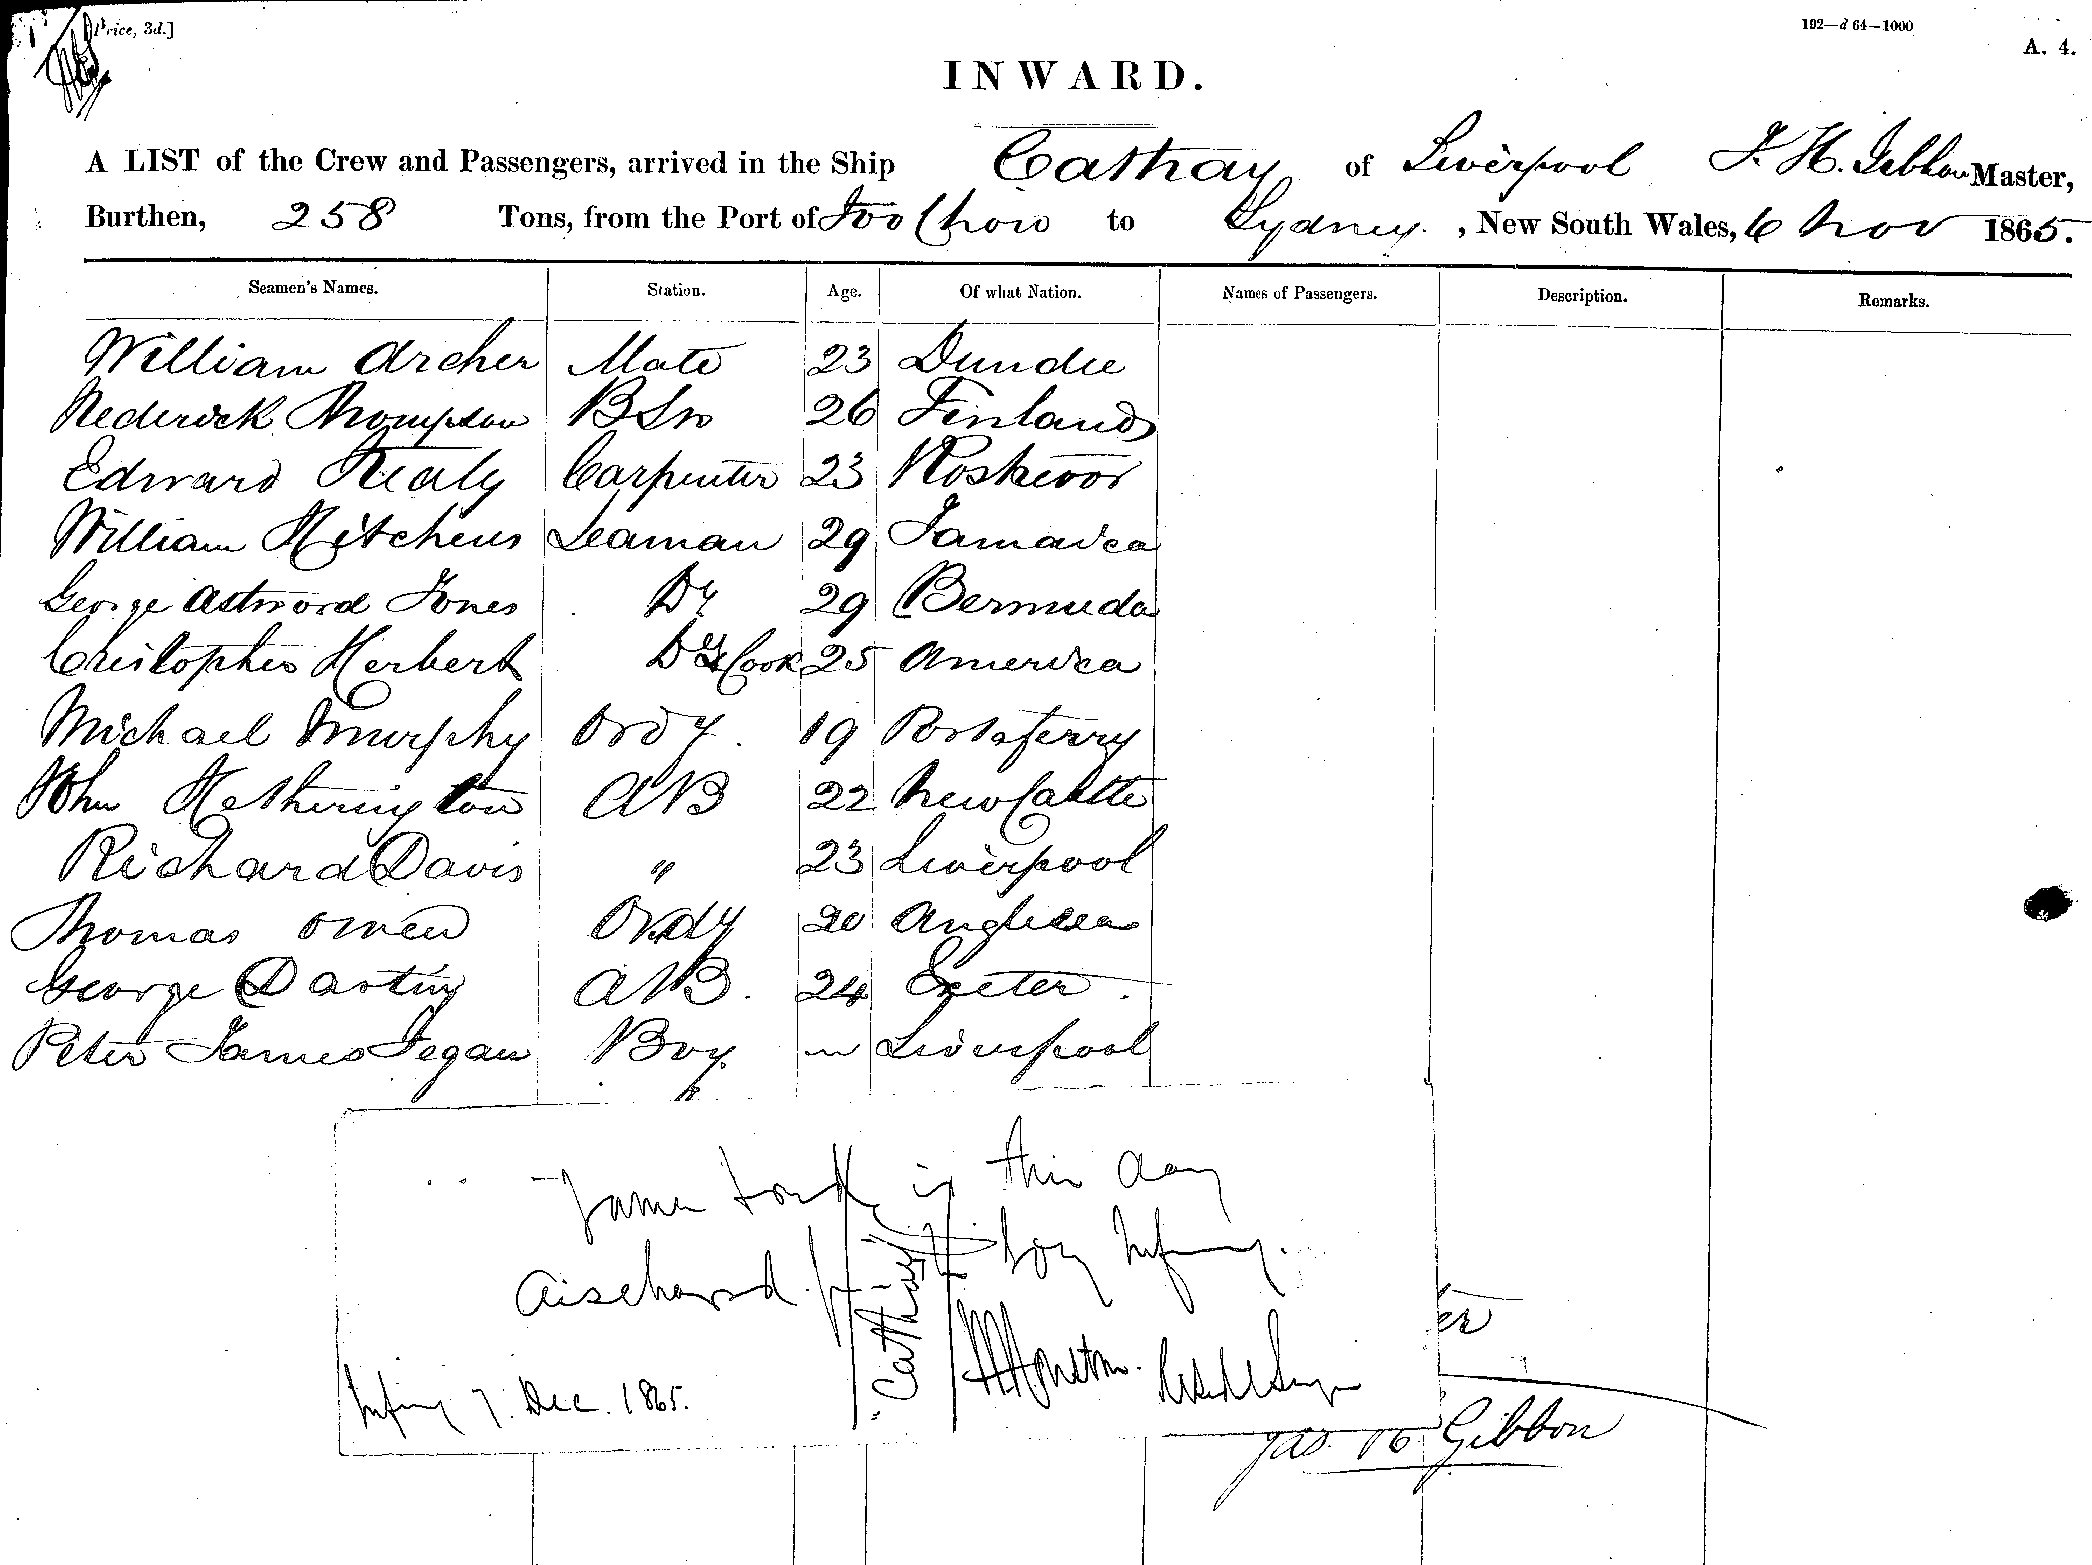 Price, 3d.]
192—d 64—1000
A. 4.
INWARD.
A LIST of the Crew and Passengers, arrived in the Ship Cathay of Liverpool J. H. Gibbon Master,
Burthen, 258 Tons, from the Port of Foo Chow to Sydney , New South Wales, 6 Nov 1865.
Seamen's Names. Station. Age. Of what Nation. Names of Passengers. Description. Remarks.
William Archer Mate 23 Dundee
Frederick Thompson BSn 26 Finland
Edward Healy Carpenter 23 Rostrevor
William Hitchens Seaman 29 Jamaica
George Astwood Jones Do 29 Bermuda
Cristopher Herbert Do & Cook 25 America
Michael Murphy Ordy. 19 Portaferry
John Hetherington AB 22 NewCastle
Richard Davis " 23 Liverpool
Thomas Owen Ordy 20 Anglesea
George Darting AB. 24 Exeter.
Peter James Fegan Boy. Liverpool
James is this day
discharged Infirmary.
"Cathay"
Infirmy 7. Dec. 1865.
er
Jas H Gibbon